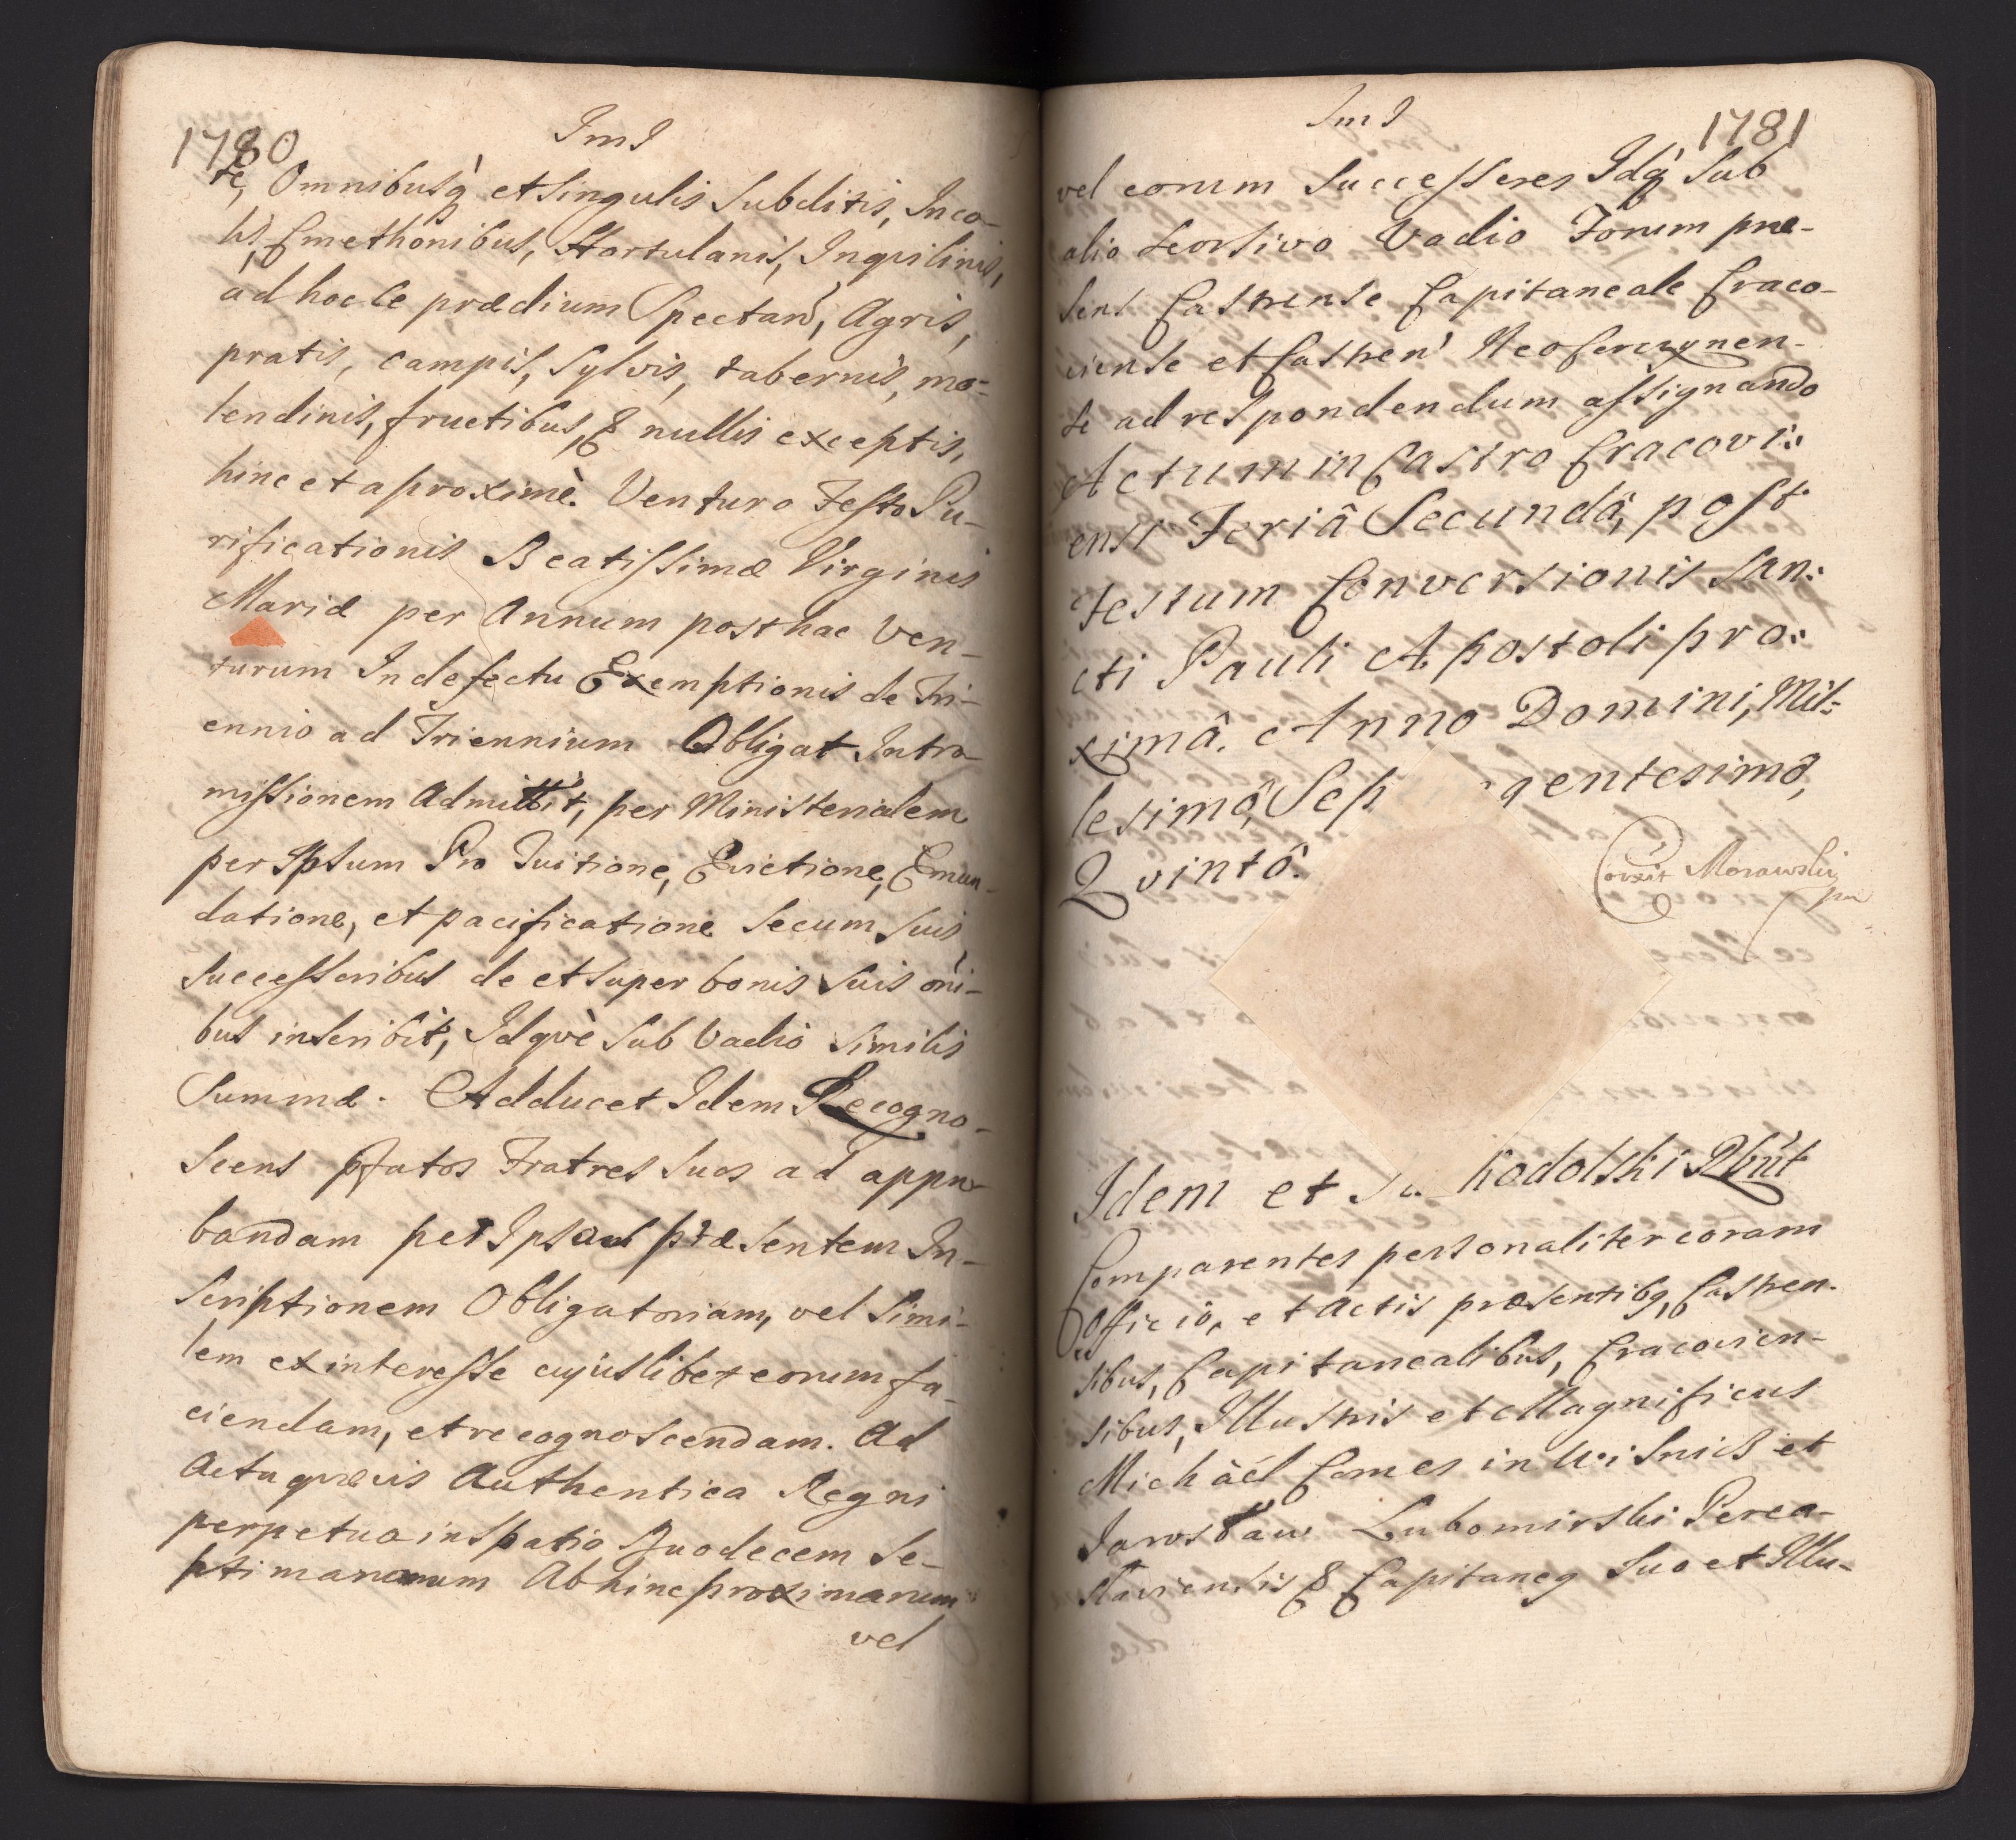 1780
ImJ
te, Omnibusq́ et Singulis Subditis, Inco-
lis, Cmethonibus, Hortulanis, Inqvilinis,
ad hocce prædium Spectañ, Agris,
pratis, campis, Sylvis, tabernis, mo-
lendinis, fructibus, & nullis exceptis,
hinc et a proximè Venturo Festo Pu-
rificationis Beatissimæ Virginis
Mariæ per Annum posthac Ven-
turum In defectu Exemptionis de Tri-
ennio ad Triennium Obligat Intro-
missionem Admittit, per Ministerialem
per Ipsum Pro Tuitione, Evictione, Emun-
datione, et pacificatione Secum Suis
Successoribus de et super bonis Suis oni-
bus inscribit, Idqvè Sub Vadio Similis
Summæ. Adducet Idem Recogno-
Scens pfatos Fratres Suos ad appro-
bandam per Ipsum præsentem In-
scriptionem Obligatoriam, vel Simi-
lem ex interesse cujuslibet eorum fa-
ciendam, et recognoscendam. Ad
Acta quævis Authentica Regni
perpetua in Spatio Duodecem Se-
ptimanarum Abhinc proximarum
vel
ImJ
1781
vel eorum Successores Idq́ Sub
alio Seorsivo Vadio Forum præ-
sens Castrense Capitaneale Craco-
viense et Castren' Neoforczynen-
se ad respondendum assignando
Actum in Castro Cracovi:
ensi Feriâ Secundâ, post
festum Conversionis San:
cti Pauli Apostoli pro:
ximâ. Anno Domini, Mil:
lesimô, Sep gentesimô,
Qvintô.
Corrxit Morawski
mp
Idem et kodolski Rbūt
Comparentes personaliter coram
Officio, et Actis præsentibq, Castren-
sibus, Capitanealibus, Cracovien-
sibus, Illustris et Magnificus
Michäel Comes in Wisnicz et
Jarosław Lubomirski Perea-
slaviensis & Capitaneq Suo et Illu-